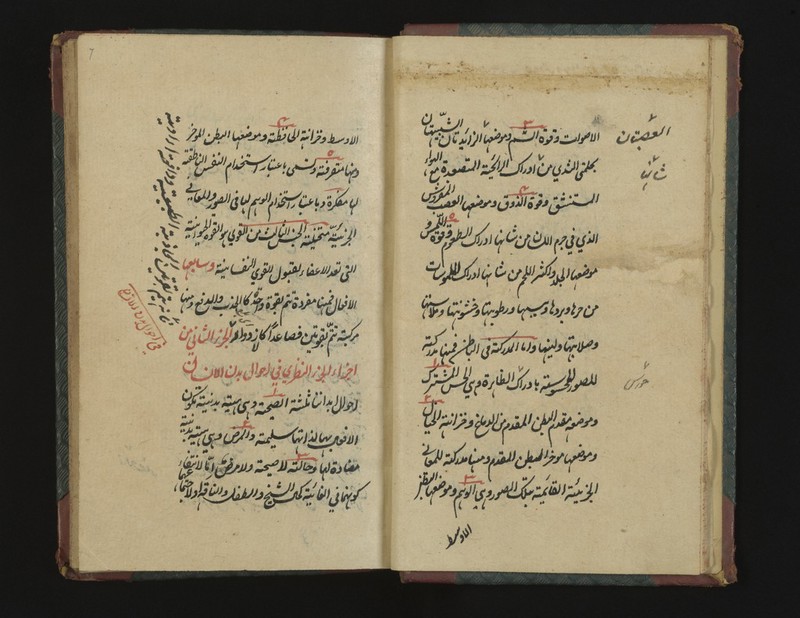 الاصوات وقوة الشم وموضعها الزائدتان الشبيهتان
بحلمتي الثدي من شانها ادراك الرائحة المتصورة مع الهواء
المستنشق وقوة الذوق وموضعها العصب المفروش
الذي في جرم اللسان من شانها ادراك الطعوم وقوة اللمس و
موضعها الجلد واكثر اللحم من شانها ادراك الملموسات
من حرها وبردها ويبسها ورطوبتها وخشونتها وملاستها
وصلابتها ولينها واما المدركة في الباطن فمنها مدركة
للصور المحسوسة بادراك الظاهرة وهي الحس المشترك
وموضعه مقدم البطن المقدم من الدماغ وخزانته الخيال
وموضعها موخر البطن المقدم ومنها مدركة للمعاني
الجزئية القائمة بتلك الصور وهي الوهم وموضعها البطن
الاوسط
العصبتان
شانها
حواس
الاوسط وخزانة الحافظة وموضعها البطن الموخر
ومنها متصرفة وتسمى باعتبار استخدام النفس الناطقة
لها مفكرة وباعتبار استخدام الوهم لها في الصور والمعاني
الجزئية متخيلة الجنس الثالث من القوى هو القوة الحيوانية
التي تعد الاعضاء لقبول القوى النفسانية وسابعها
الافعال فمنها مفردة تتم بقوة واحدة كالجذب والدفع ومنها
مركبة تتم بقوتين فصاعدا كالازدراد الجزء الثاني من
اجزاء الجزء النظري في احوال بدن الانسان
احوال بداننا ثلثة الصحة وهي هيئة بدنية تكون
الافعال بها لذاتها سليمة والمرض وهي هيئة بدنية
مضادة لها وحالة لا صحة ولا مرض اما لانتفاء
كونهما في الغاية كما للشيخ والطفل والناقه او لاجتماعهما